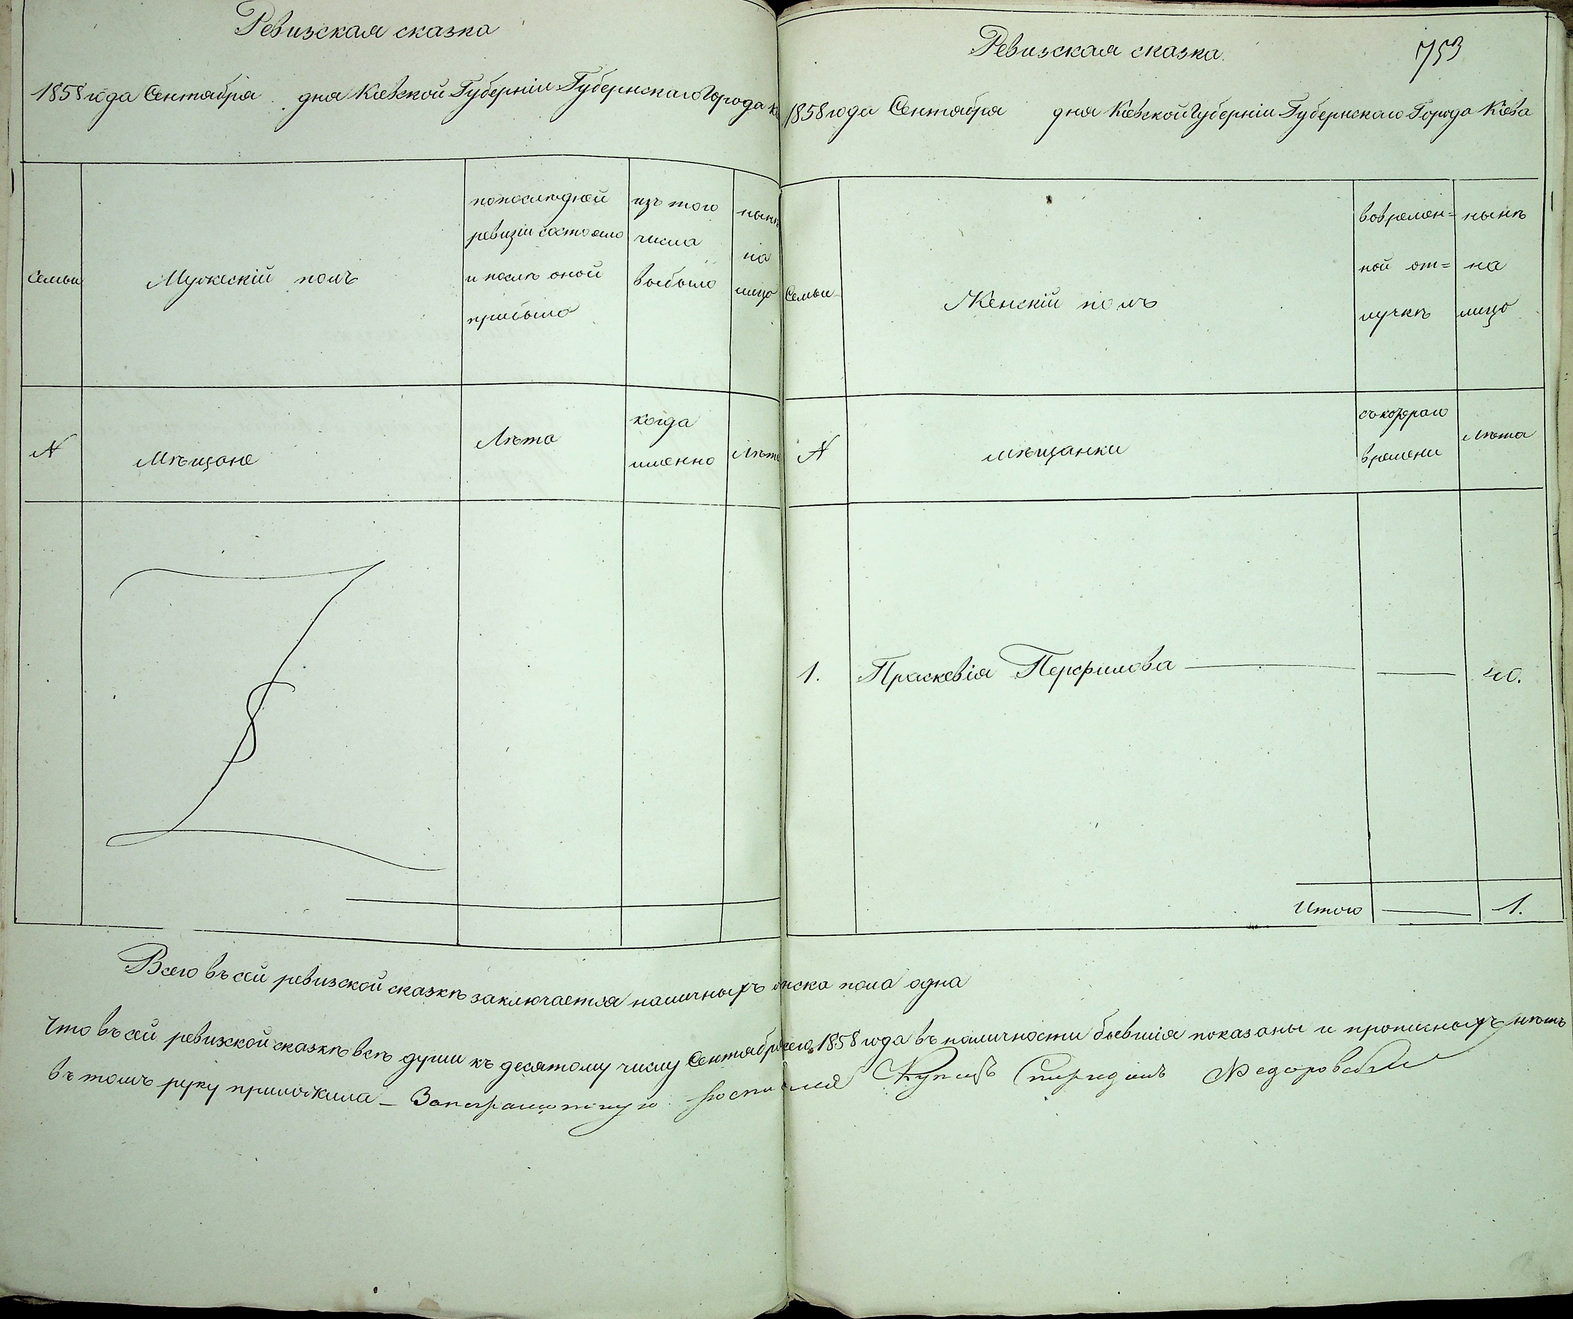 Ревизская сказка
1858 года Сентября дня Кіевской Губерніи Губернскаго Города
Семьи
Мужескій полъ
по последней
ревизіи состояло
и после оной
прибыло
изъ того
числа
выбыло
ныне
на
лицо
N
Мѣщане
Лѣта
когда
именно
Лѣта
Ревизская сказка
753
1858 года Сентября дня Кіевской Губерніи Губернскаго Города Кіева
Семьи
Женскій полъ
вовремен=
ной от=
лучкѣ
нынѣ
на
лицо
N
мѣщанки
съ котораго
времени
Лѣта
1. Праскевія Перфилова — — 40.
Итого — 1.
Всего въ сей ревизской сказкѣ заключается наличныхъ женска пола одна
Что въ сей ревизской сказкѣ всѣ души къ десятому числу Сентября сего 1858 года въ наличности бывшія показаны и прописныхъ нѣтъ
въ томъ руку приложила — Купецъ Спиридонъ